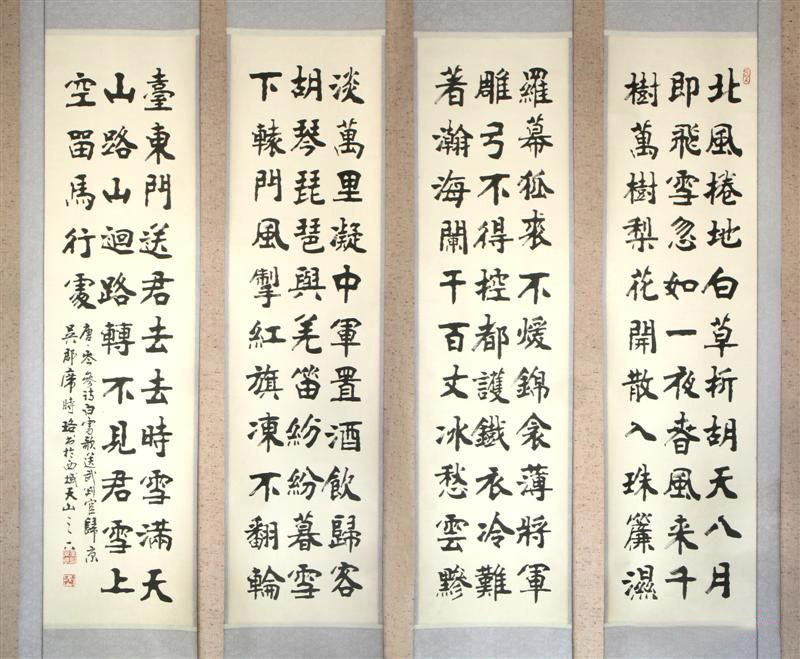 北風捲地白草折胡天八月
即飛雪忽如一夜春風来千
樹萬樹梨花開散入珠簾濕
羅幕狐裘不煖錦衾薄將軍
雕弓不得控都護鐵衣冷難
著瀚海闌干百丈冰愁雲黪
淡萬里凝中軍置酒飲歸客
胡琴琵琶與羌笛紛紛暮雪
下轅門風掣紅旗凍不翻輪
臺東門送君去去時雪滿天
山路山迴路轉不見君雪上
空留馬行處
唐岑參詩白雪歌送武判官歸京
吳郡席時珞書於西域天山之下